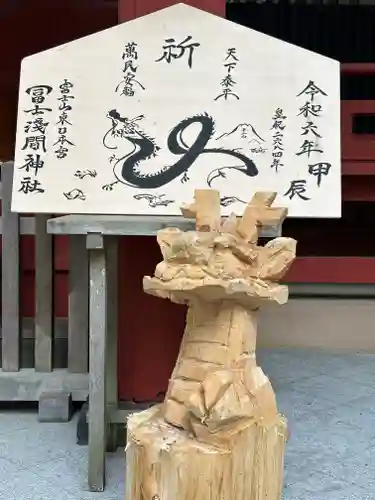 祈
天下泰平
萬民安福
令和六年 甲辰
皇紀二六八四年
富士山東口本宮
冨士浅間神社